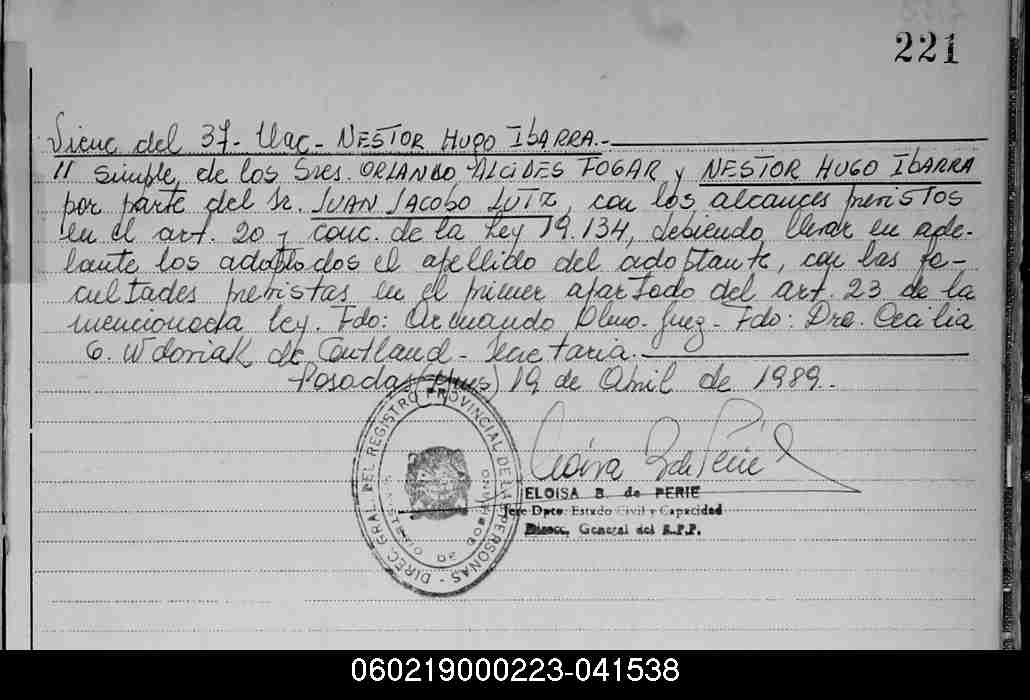 221
Viene del 37- Nac- NESTOR HUGO IBARRA.-
" simple, de los Sres. ORLANDO ALCIDES FOGAR y NESTOR HUGO IBARRA
por parte del Sr. JUAN JACOBO LUTZ, con los alcances previstos
en el art. 20 y conc. de la Ley 19.134, debiendo llevar en ade-
lante los adoptados el apellido del adoptante, con las fa-
cultades previstas en el primer apartado del art. 23 de la
mencionada ley. Fdo: Armando Olmo. Juez- Fdo: Dra. Cecilia
G. Wdoviak de Coutland- Secretaria.
Posadas (Mnes) 19 de Abril de 1989.-
DIREC. GRAL. DEL REGISTRO PROVINCIAL DE LAS PERSONAS
ELOISA B. de PERIE
Jefe Dpto. Estado Civil y Capacidad
Direcc. General del R.P.P.
060219000223-041538